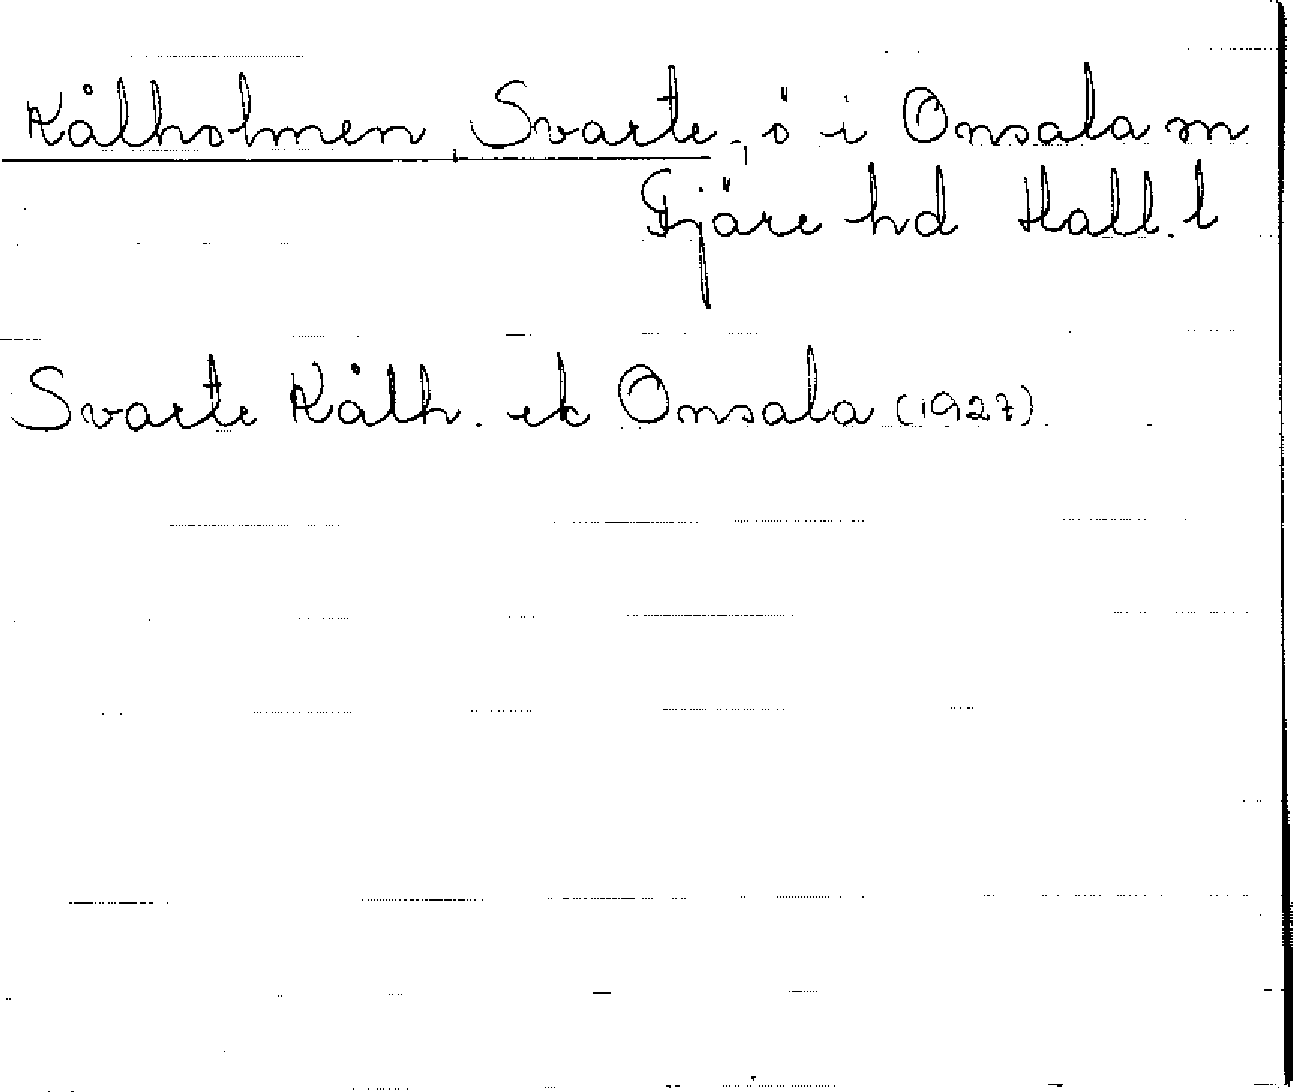 Kålholmen, Svarte, ö i Onsala sn
Fjäre hd Hall. l
Svarte Kålh. ek Onsala (1927).